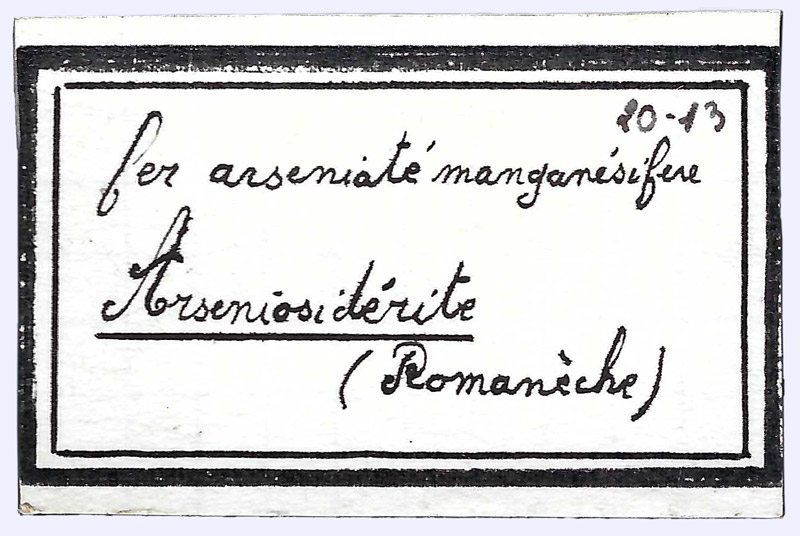 20-13
fer arseniaté manganésifere
Arseniosidérite
(Romanèche)